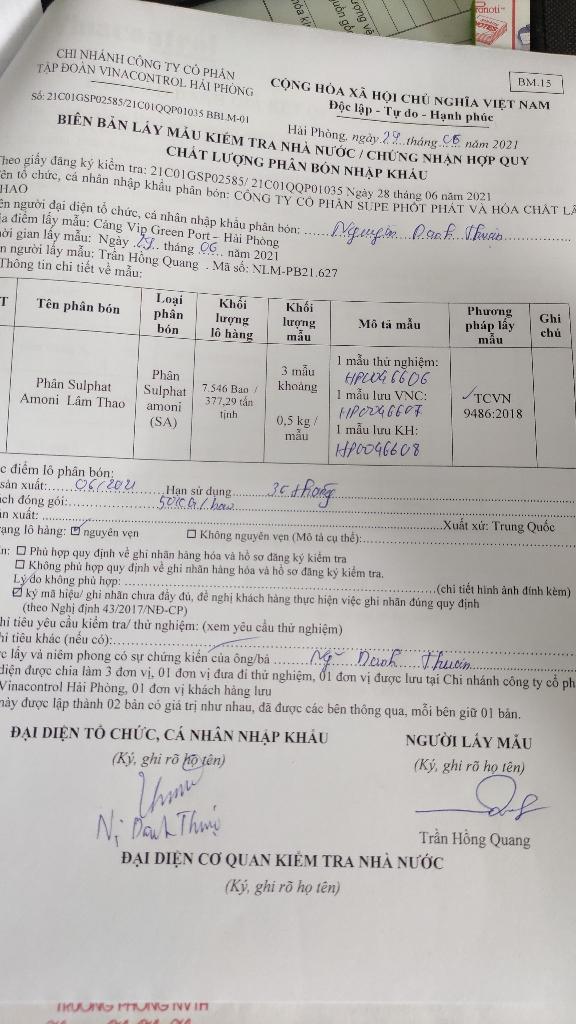 BM.15
CHI NHÁNH CÔNG TY CỔ PHẦN
TẬP ĐOÀN VINACONTROL HẢI PHÒNG
Số: 21C01GSP02585/21C01QQP01035 BBLM-01
CỘNG HÒA XÃ HỘI CHỦ NGHĨA VIỆT NAM
Độc lập - Tự do - Hạnh phúc
Hải Phòng, ngày 29 tháng 06 năm 2021
BIÊN BẢN LẤY MẪU KIỂM TRA NHÀ NƯỚC / CHỨNG NHẬN HỢP QUY
CHẤT LƯỢNG PHÂN BÓN NHẬP KHẨU
Theo giấy đăng ký kiểm tra: 21C01GSP02585/ 21C01QQP01035 Ngày 28 tháng 06 năm 2021
ên tổ chức, cá nhân nhập khẩu phân bón: CÔNG TY CỔ PHẦN SUPE PHỐT PHÁT VÀ HÓA CHẤT LÂ
HAO
ên người đại diện tổ chức, cá nhân nhập khẩu phân bón: Nguyễn Danh Thuân
ịa điểm lấy mẫu: Cảng Vip Green Port – Hải Phòng
hời gian lấy mẫu: Ngày 29 tháng 06 năm 2021
n người lấy mẫu: Trần Hồng Quang . Mã số: NLM-PB21.627
Thông tin chi tiết về mẫu:
T Tên phân bón Loại phân bón Khối lượng lô hàng Khối lượng mẫu Mô tả mẫu Phương pháp lấy mẫu Ghi chú
Phân Sulphat Amoni Lâm Thao
Phân Sulphat amoni (SA)
7.546 Bao / 377,29 tấn tịnh
3 mẫu khoảng
0,5 kg / mẫu
1 mẫu thử nghiệm:
HP0046606
1 mẫu lưu VNC:
HP0046607
1 mẫu lưu KH:
HP0046608
TCVN 9486:2018
c điểm lô phân bón:
sản xuất: 06/2021 Hạn sử dụng 36 tháng
ách đóng gói: 50KG/bao
n xuất: Xuất xứ: Trung Quốc
rạng lô hàng: ☑ nguyên vẹn ☐ Không nguyên vẹn (Mô tả cụ thể):
n: ☐ Phù hợp quy định về ghi nhãn hàng hóa và hồ sơ đăng ký kiểm tra
☐ Không phù hợp quy định về ghi nhãn hàng hóa và hồ sơ đăng ký kiểm tra.
Lý do không phù hợp: (chi tiết hình ảnh đính kèm)
☑ ký mã hiệu/ ghi nhãn chưa đầy đủ, đề nghị khách hàng thực hiện việc ghi nhãn đúng quy định
(theo Nghị định 43/2017/NĐ-CP)
hỉ tiêu yêu cầu kiểm tra/ thử nghiệm: (xem yêu cầu thử nghiệm)
hỉ tiêu khác (nếu có):
c lấy và niêm phong có sự chứng kiến của ông/bà Ng~ Danh Thuân
diện được chia làm 3 đơn vị, 01 đơn vị đưa đi thử nghiệm, 01 đơn vị được lưu tại Chi nhánh công ty cổ ph
Vinacontrol Hải Phòng, 01 đơn vị khách hàng lưu
này được lập thành 02 bản có giá trị như nhau, đã được các bên thông qua, mỗi bên giữ 01 bản.
ĐẠI DIỆN TỔ CHỨC, CÁ NHÂN NHẬP KHẨU
(Ký, ghi rõ họ tên)
NGƯỜI LẤY MẪU
(Ký, ghi rõ họ tên)
Trần Hồng Quang
ĐẠI DIỆN CƠ QUAN KIỂM TRA NHÀ NƯỚC
(Ký, ghi rõ họ tên)
TRƯỞNG PHÒNG NVTH